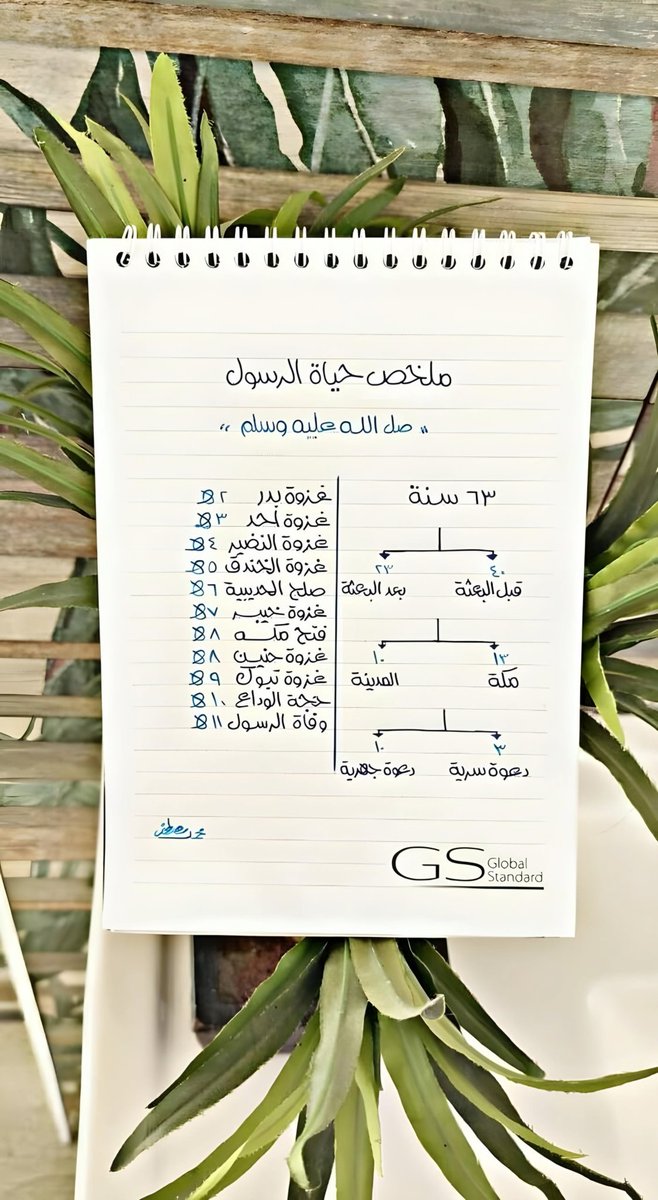 ملخص حياة الرسول
" صل الله عليه وسلم "
٦٣ سنة
٤٠ ٢٣
قبل البعثة بعد البعثة
١٣ ١٠
مكة المدينة
٣ ١٠
دعوة سرية دعوة جهرية
غزوة بدر ٢ هـ
غزوة احد ٣ هـ
غزوة النضير ٤ هـ
غزوة الخندق ٥ هـ
صلح الحديبية ٦ هـ
غزوة خيبر ٧ هـ
فتح مكة ٨ هـ
غزوة حنين ٨ هـ
غزوة تبوك ٩ هـ
حجة الوداع ١٠ هـ
وفاة الرسول ١١ هـ
GS Global
Standard